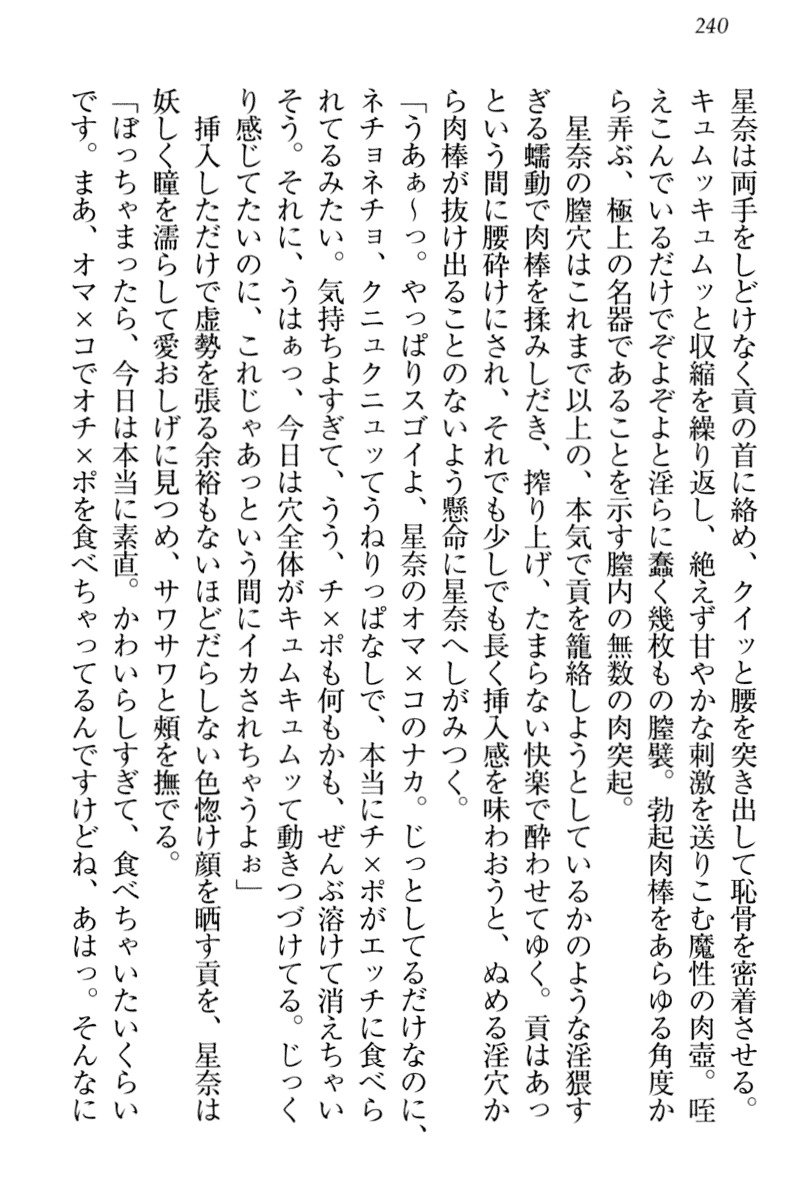 240
星奈は両手をしどけなく貢の首に絡め、クイッと腰を突き出して恥骨を密着させる。
キュムッキュムッと収縮を繰り返し、絶えず甘やかな刺激を送りこむ魔性の肉壺。咥
えこんでいるだけでぞよぞよと淫らに蠢く幾枚もの膣襞。勃起肉棒をあらゆる角度か
ら弄ぶ、極上の名器であることを示す膣内の無数の肉突起。
星奈の膣穴はこれまで以上の、本気で貢を籠絡しようとしているかのような淫猥す
ぎる蠕動で肉棒を揉みしだき、搾り上げ、たまらない快楽で酔わせてゆく。貢はあっ
という間に腰砕けにされ、それでも少しでも長く挿入感を味わおうと、ぬめる淫穴か
ら肉棒が抜け出ることのないよう懸命に星奈へしがみつく。
「うあぁ～っ。やっぱりスゴイよ、星奈のオマ×コのナカ。じっとしてるだけなのに、
ネチョネチョ、クニュクニュッてうねりっぱなしで、本当にチ×ポがエッチに食べら
れてるみたい。気持ちよすぎて、うう、チ×ポも何もかも、ぜんぶ溶けて消えちゃい
そう。それに、うはぁっ、今日は穴全体がキュムキュムッて動きつづけてる。じっく
り感じてたいのに、これじゃあっという間にイカされちゃうよぉ」
挿入しただけで虚勢を張る余裕もないほどだらしない色惚け顔を晒す貢を、星奈は
妖しく瞳を濡らして愛おしげに見つめ、サワサワと頬を撫でる。
「ぼっちゃまったら、今日は本当に素直。かわいらしすぎて、食べちゃいたいくらい
です。まあ、オマ×コでオチ×ポを食べちゃってるんですけどね、あはっ。そんなに